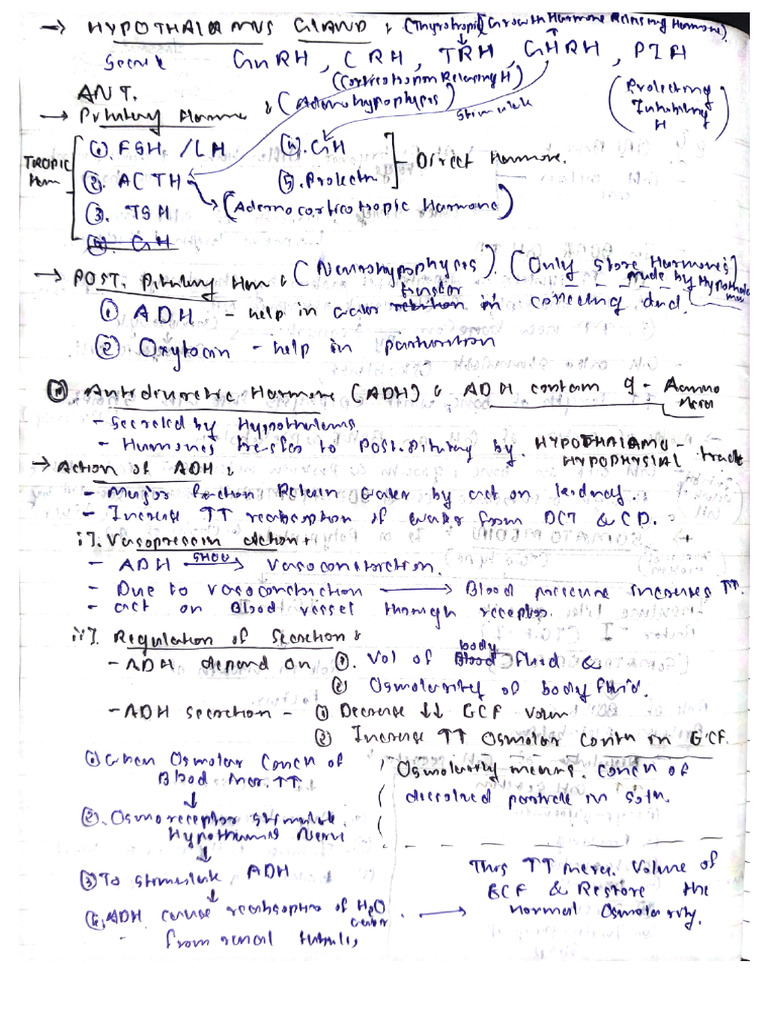 → HYPOTHALAMUS GLAND : (Thyrotropic) (Growth Hormone Relising Hormone).
Secrete GnRH, CRH, TRH, GHRH, PIH
(Corticotropin Relasing H) (Prolecting Inhibiting H)
ANT.
→ Pitutary Hormone : (Adenohypophysis) stimulate
TROPIC Hom
①. FSH /LH ④. GH
②. ACTH ⑤. Prolectin - Direct Hormone.
→ (Adernocorticotropic Hormone)
③. TSH
④. GH
→ POST. Pitutary Hom : (Neurohypophysis). (Only store Hormones) made by Hypothalamus
① ADH - help in water retention transfer in collecting duct.
② Oxytocin - help in parturition
① Antidiuretic Hormone (ADH) : ADH contain 9 - Aamino Acid
- Secreted by Hypothalamus
- Hormones transfer to Post. Pitutary by. HYPOTHALAMO - HYPOPHYSIAL track
→ Action of ADH :
- Major function Retain water by act on kidney.
- Increase ↑↑ reabsorption of water from DCT & CD.
i]. Vasopressin action :
- ADH show → Vasoconstriction.
- Due to vasoconstriction → Blood pressure increases ↑↑.
- act on Blood vessel through receptor.
ii]. Regulation of Secretion :
- ADH depend on ①. Vol of Blood body fluid &
② Osmolarity of body fluid.
- ADH secretion - ① Decrease ↓↓ ECF Volum
② Increase ↑↑ Osmolar Contn in ECF.
① when Osmolar Concn of
Blood incr. ↑↑
↓
②. Osmoreceptor stimulate
Hypothamus Nerve
↓
③ To stimulate ADH
↓
④. ADH cause reabsorption of H2O water
from renal tubuli,
Osmolarity means. concn of
dissolved particle in soln.
→ This ↑↑ incre. Volume of
ECF & Restore the
normal Osmolarity.